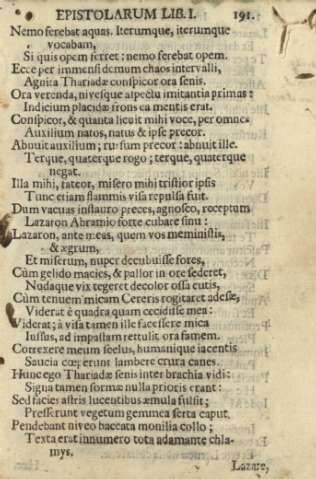 EPISTOLARUM LIB. I. 191.
Nemo ferebat aquas. Iterumque, iterumque
vocabam,
Si quis opem ferret: nemo ferebat opem.
Ecce per immensi demum chaos intervalli,
Agnita Thariadæ conspicor ora senis.
Ora verenda, nivesque aspectu imitantia primas:
Indicium placidæ frons ea mentis erat.
Conspicor, & quanta licuit mihi voce, per omnes
Auxilium natos, natus & ipse precor.
Abnuit auxilium; rursum precor: abnuit ille.
Terque, quaterque rogo; terque, quaterque
negat.
Illa mihi, fateor, misero mihi tristior ipsis
Tunc etiam flammis visa repulsa fuit.
Dum vacuas instauro preces, agnosco, receptum
Lazaron Abramio forte cubare sinu:
Lazaron, ante meas, quem vos meministis,
& ægrum,
Et miserum, nuper decubuisse fores,
Cùm gelido macies, & pallor in ore sederet,
Nudaque vix tegeret decolor ossa cutis,
Cùm tenuem micam Cereris rogitaret adesæ,
Viderat è quadra quam cecidisse mea:
Viderat; à visa tamen ille facessere mica
Iussus, ad impastam rettulit ora famem.
Correxere meum scelus, humanique iacentis
Saucia cœperunt lambere crura canes.
Hunc ego Thariadæ senis inter brachia vidi:
Signa tamen formæ nulla prioris erant:
Sed facies astris lucentibus æmula fulsit;
Presserunt vegetum gemmea serta caput.
Pendebant niveo baccata monilia collo;
Texta erat innumero tota adamante chla-
mys.
Lazare,